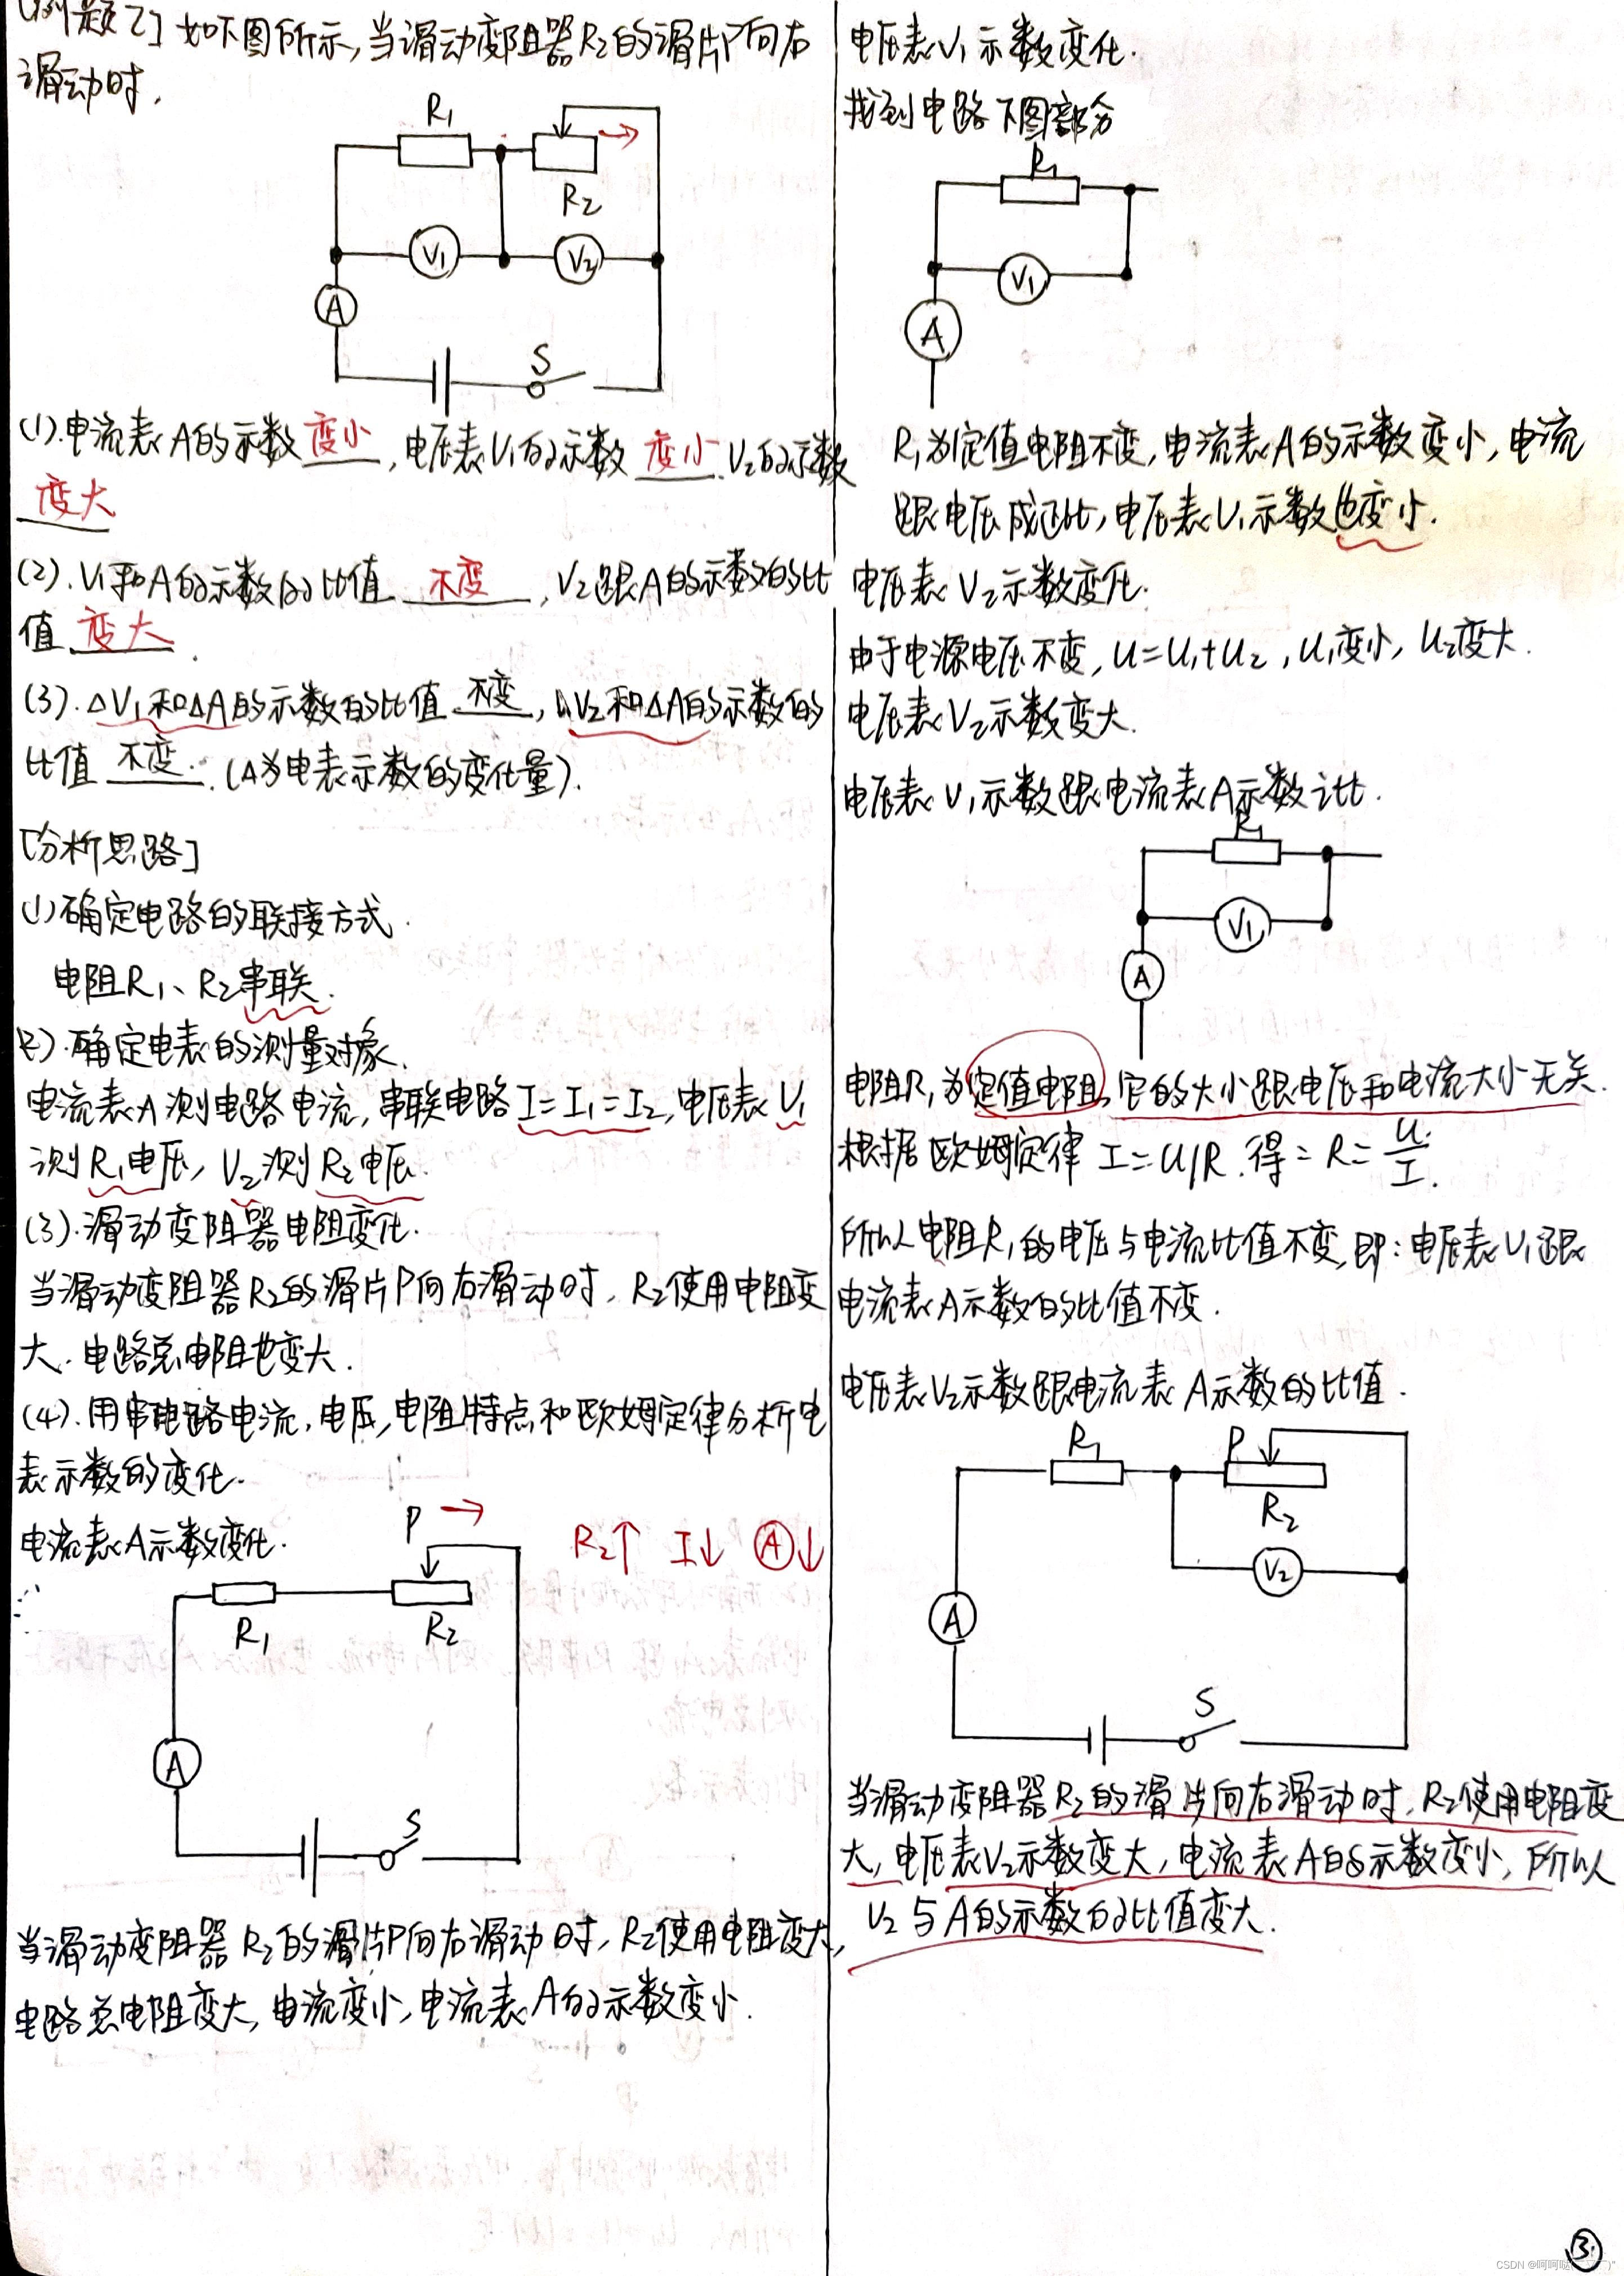 [例题2] 如下图所示,当滑动变阻器R2的滑片P向右
滑动时,
R1
R2
V1
V2
A
S
(1).电流表A的示数 变小 ,电压表V1的示数 变小 .V2的示数
变大
(2).V1和A的示数的比值 不变 ,V2跟A的示数的比
值 变大 .
(3).△V1和△A的示数的比值 不变 ,△V2和△A的示数的
比值 不变 .(△为电表示数的变化量).
[分析思路]
(1)确定电路的联接方式.
电阻R1、R2串联.
(2).确定电表的测量对象.
电流表A测电路电流,串联电路I=I1=I2,电压表V1
测R1电压,V2测R2电压.
(3).滑动变阻器电阻变化.
当滑动变阻器R2的滑片P向右滑动时,R2使用电阻变
大.电路总电阻也变大.
(4).用串电路电流,电压,电阻特点和欧姆定律分析电
表示数的变化.
电流表A示数变化.
P
R2↑ I↓ A↓
R1
R2
A
S
当滑动变阻器R2的滑片P向右滑动时,R2使用电阻变大,
电路总电阻变大,电流变小,电流表A的示数变小.
电压表V1示数变化.
找到电路下图部分
R1
V1
A
R1为定值电阻不变,电流表A的示数变小,电流
跟电压成正比,电压表V1示数也变小.
电压表V2示数变化.
由于电源电压不变,U=U1+U2,U1变小,U2变大.
电压表V2示数变大.
电压表V1示数跟电流表A示数之比.
R1
V1
A
电阻R1为定值电阻,它的大小跟电压和电流大小无关.
根据欧姆定律 I=U/R.得:R=U/I.
所以电阻R1的电压与电流比值不变,即:电压表V1跟
电流表A示数的比值不变.
电压表V2示数跟电流表A示数的比值.
R1
P
R2
V2
A
S
当滑动变阻器R2的滑片向右滑动时,R2使用电阻变
大,电压表V2示数变大,电流表A的示数变小,所以
V2与A的示数的比值变大.
③